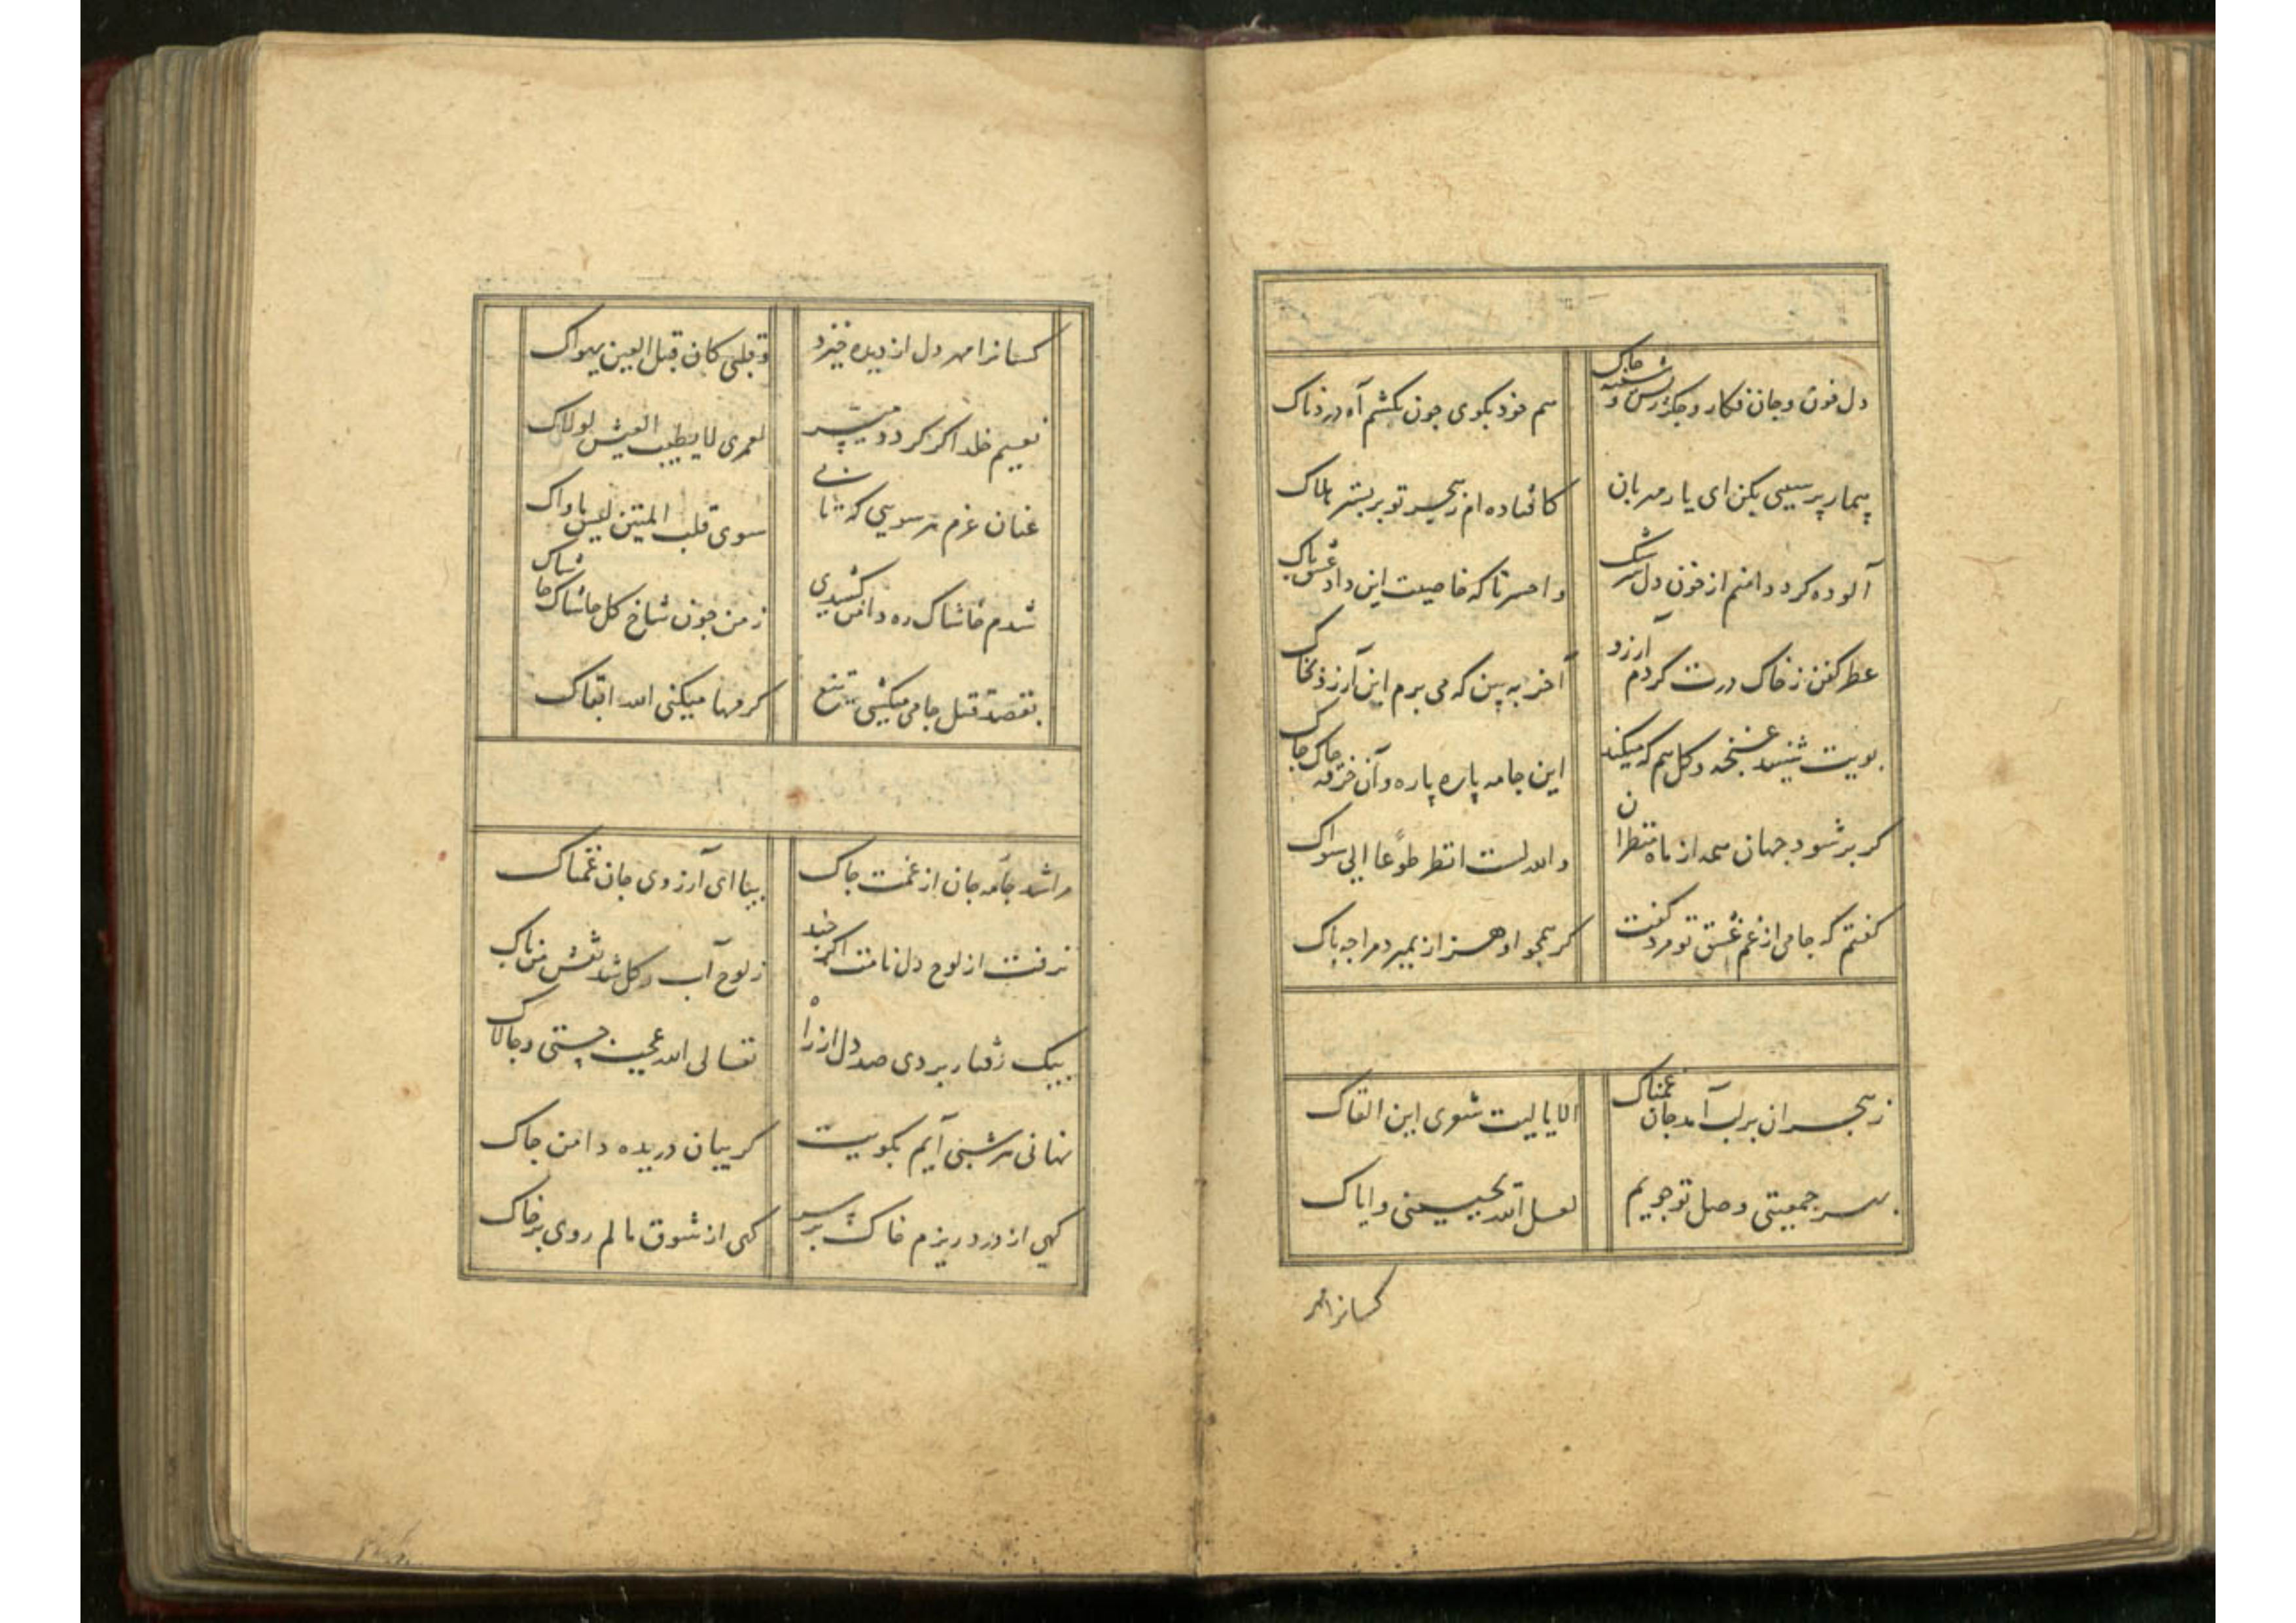 دل خون و جان فکار و جگر ریش و سینه چاک
هم خود بگوی چون نکشم آه دردناک
بیمار پرسیی بکن ای یار مهربان
کافتاده ام ز هجر تو بر بستر هلاک
آلوده کرد دامنم از خون دل سرشک
واحسرتا که خاصیت این داد عشق پاک
عطر کفن ز خاک درت کردم آرزو
آخر به بین که می برم این آرزو بخاک
بویت شنید غنچه و گل هم که میکند
این جامه پاره پاره و آن خرقه چاک چاک
گر پر شود جهان همه از ماه منظران
والله لست انظر طوعا الی سواک
گفتم که جامی از غم عشق تو مرد گفت
گر همچو او هزار بمیرد مرا چه باک
ز هجران بر لب آمد جان غمناک
الا یا لیت شعری این القاک
بسر جمعیتی وصل تو جویم
لعل الله یجمعنی و ایاک
کسانرا مهر
کسانرا مهر دل از دیده خیزد
و قلبی کان قبل العین یهواک
نعیم خلد اگر گردد میسر
لعمری لا یطیب العیش لولاک
عنان عزم هر سویی که تابی
سوی قلب المتیم لیس ماواک
شدم خاشاک ره دامن کشیدی
ز من چون شاخ گل حاشاک حاشاک
بقصد قتل جامی میکشی تیغ
کرمها میکنی الله ابقاک
مرا شد جامه جان از غمت چاک
بیا ای آرزوی جان غمناک
نرفت از لوح دل نامت اگر چند
ز لوح آب و گل شد نقش من پاک
بیک رفتار بردی صد دل از راه
تعالی الله عجب چستی و چالاک
نهانی هر شبی آیم بکویت
گریبان دریده دامن چاک
گهی از درد ریزم خاک بر سر
گهی از شوق مالم روی بر خاک